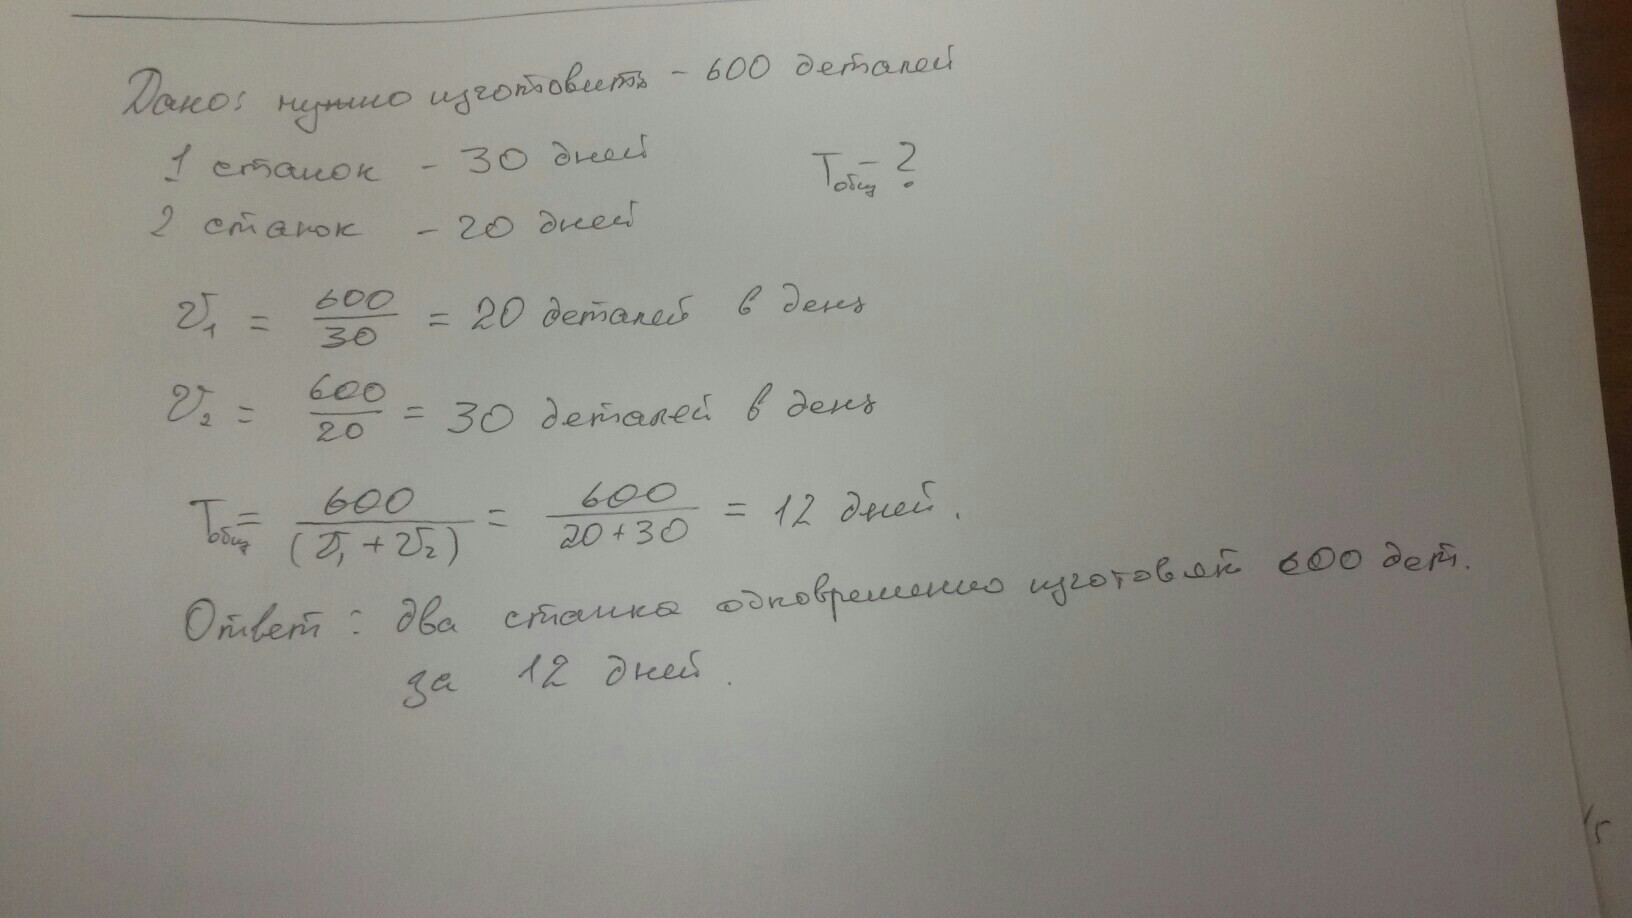 Дано: нужно изготовить - 600 деталей
1 станок - 30 дней
Tобщ - ?
2 станок - 20 дней
V1 = 600/30 = 20 деталей в день
V2 = 600/20 = 30 деталей в день
Tобщ = 600/(V1 + V2) = 600/20+30 = 12 дней.
Ответ: два станка одновременно изготовят 600 дет.
за 12 дней.